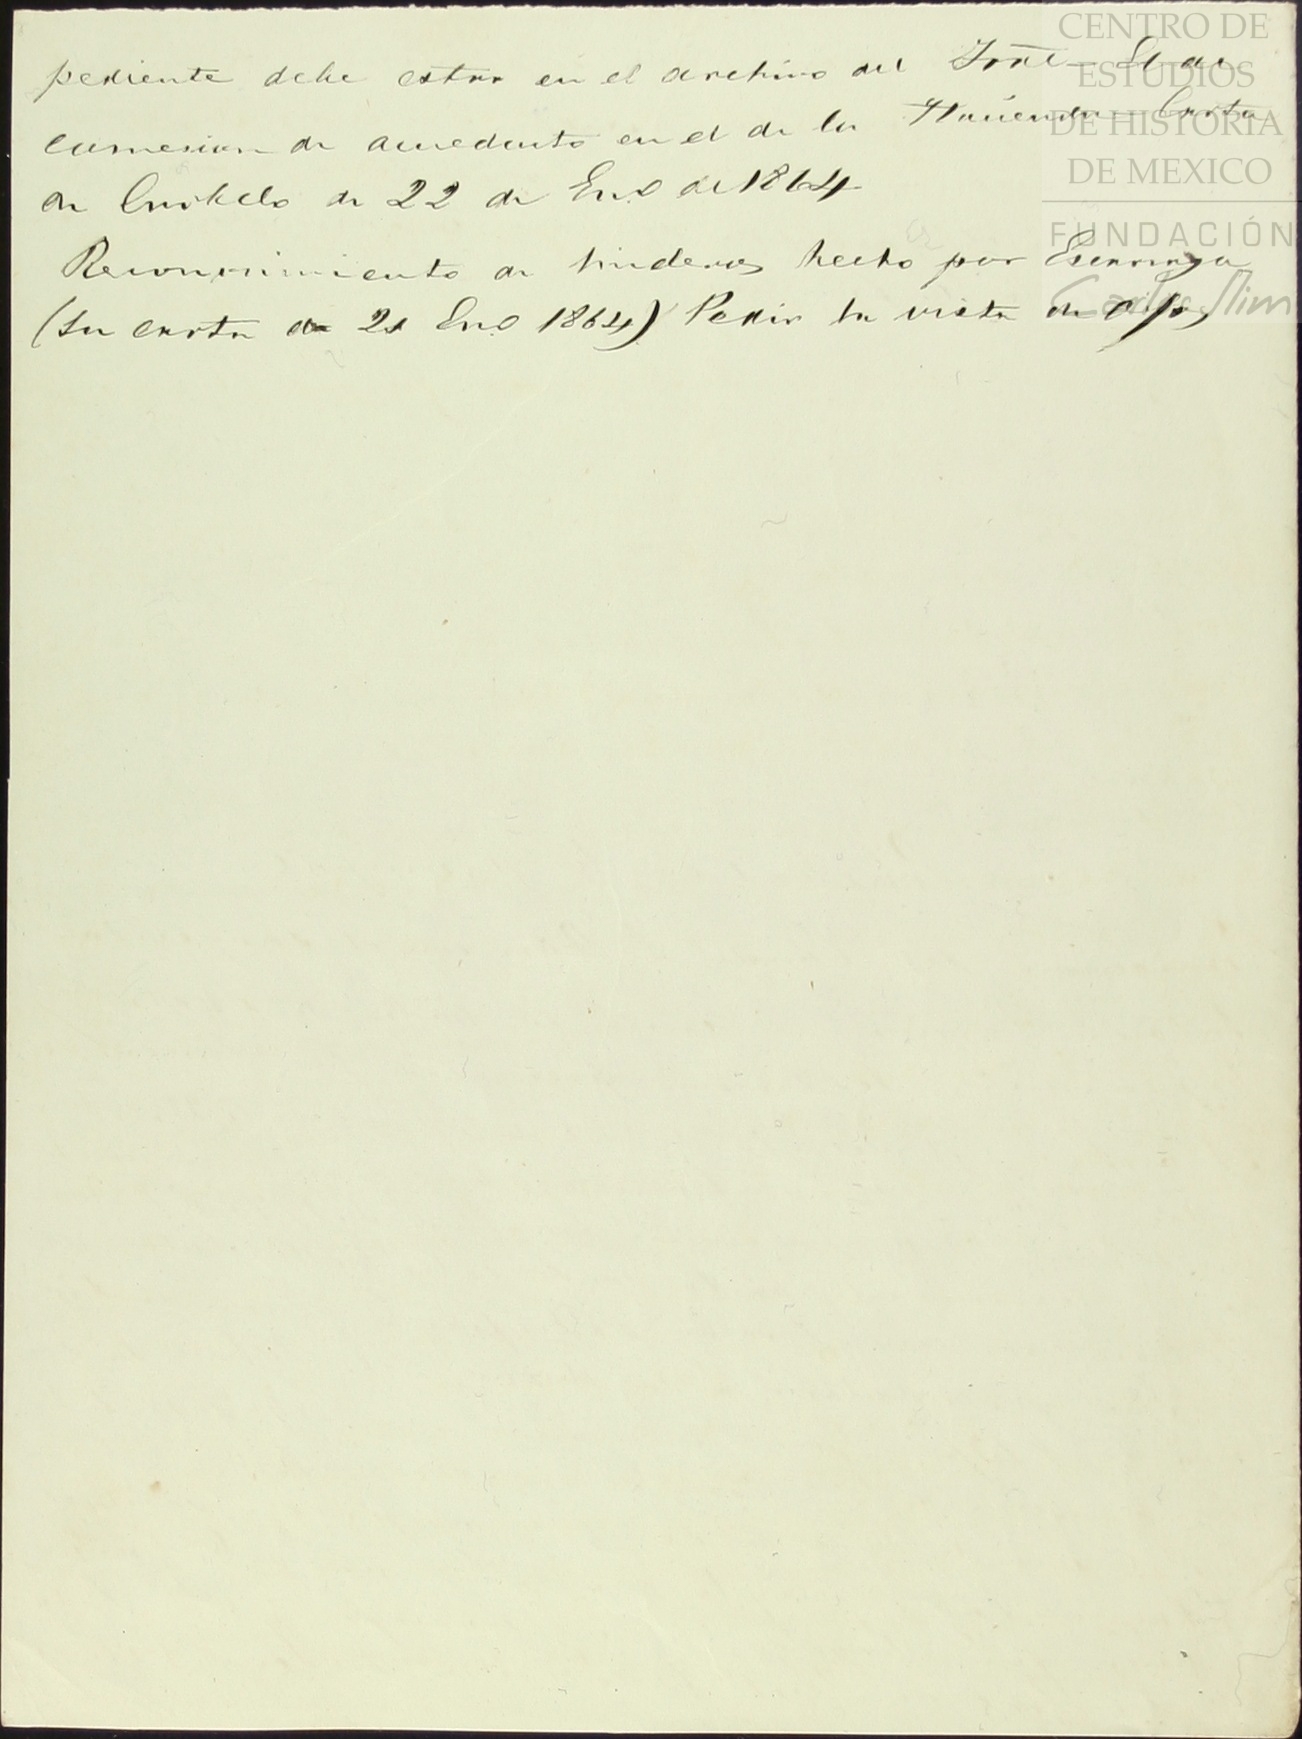 pediente debe estar en el archivo del
comision de acueducto en el de la Hacienda – Carta
de de 22 de Eno de 1864
Reconocimiento de linderos hecho por
(Su carta de 21 Eno 1864) Pedir la vista de ojos
CENTRO DE
ESTUDIOS
DE HISTORIA
DE MEXICO
FUNDACIÓN
Carlos Slim